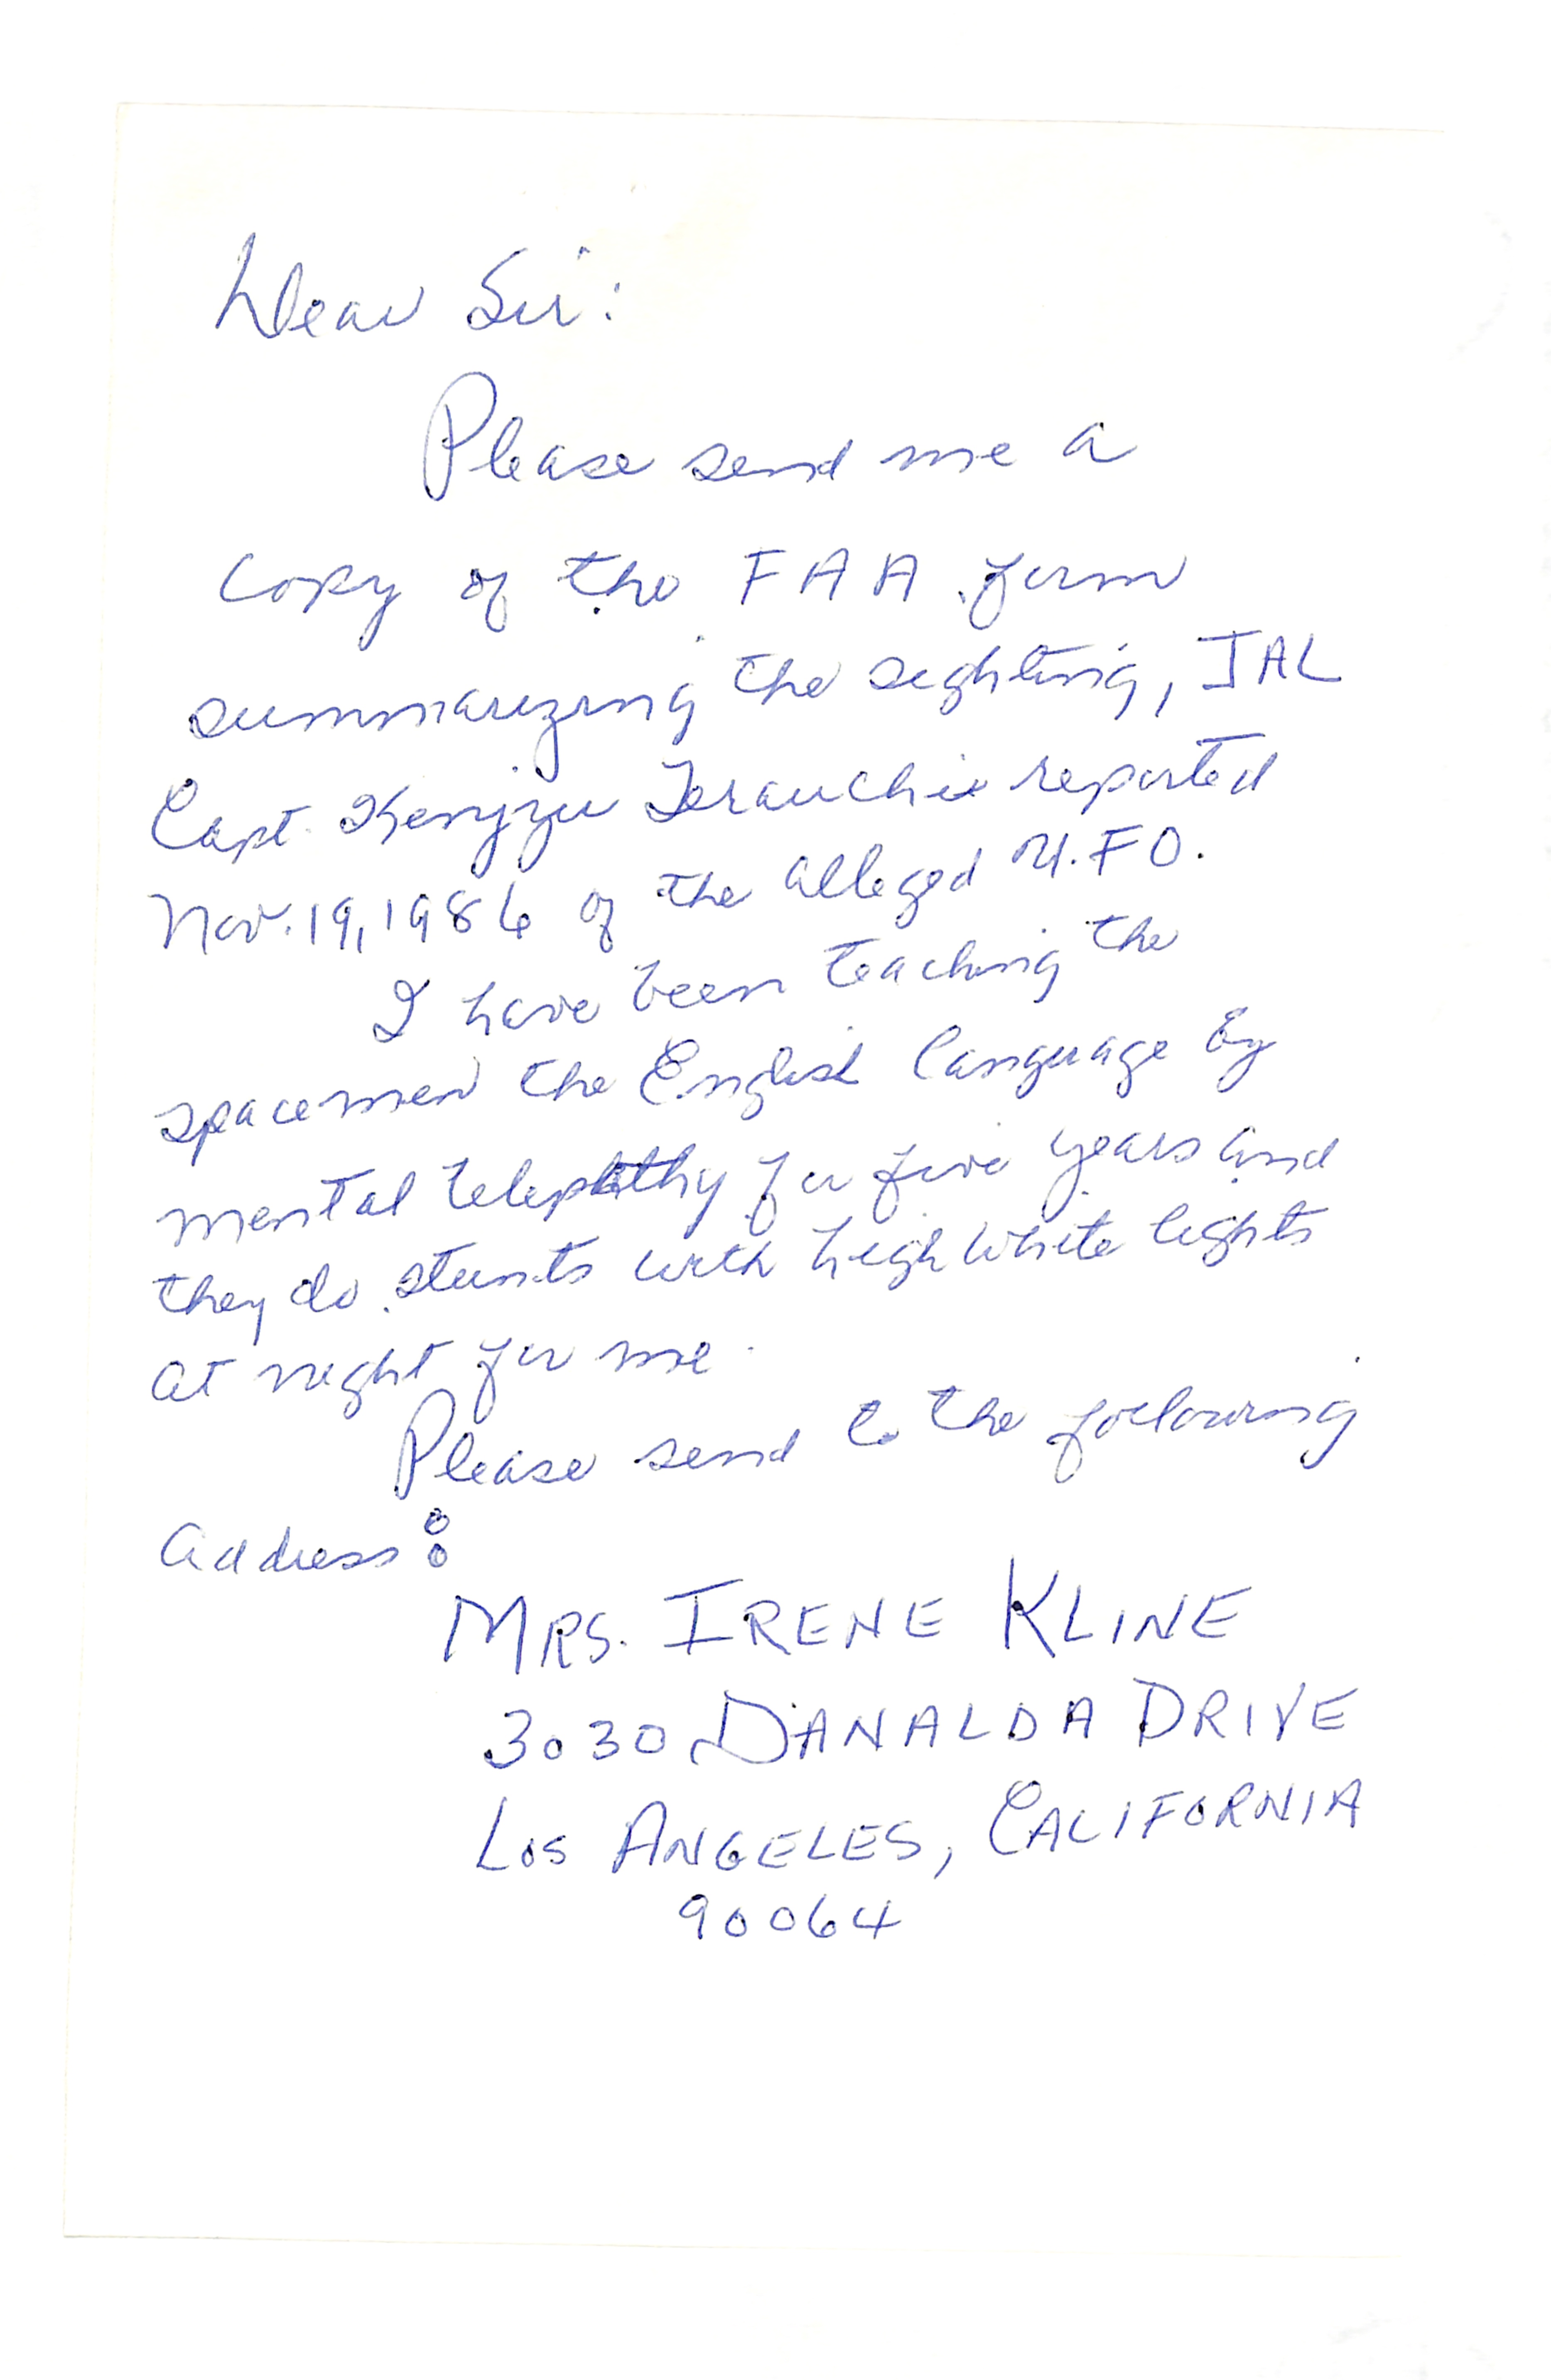 Dear Sir:
Please send me a
copy of the FAA form
summarizing the sighting, JAL
Capt. Kenjyu Terauchi reported
Nov. 19, 1986 of the alleged U.FO.
I have been teaching the
spacemen the English language by
mental telepathy for five years and
they do stunts with high white lights
at night for me.
Please send to the following
address:
MRS. IRENE KLINE
3030 DANALDA DRIVE
LOS ANGELES, CALIFORNIA
90064